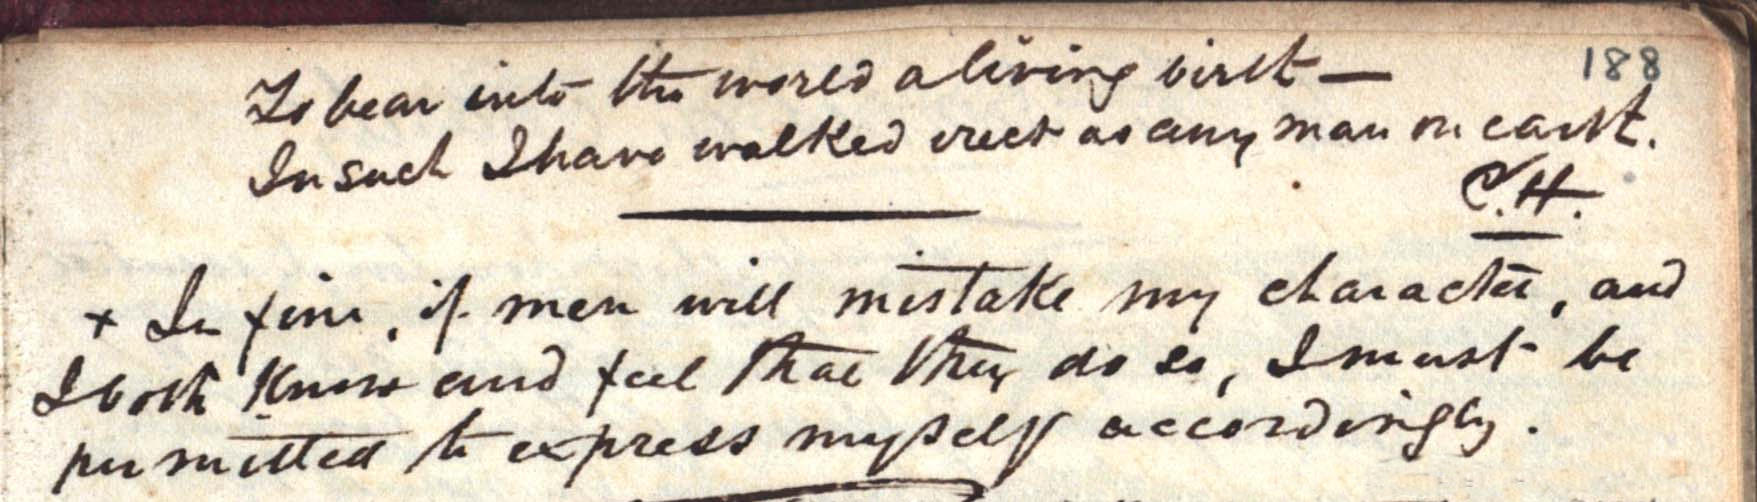 188
To bear into the world a living birth —
In such I have walked erect as any man on earth.
C. H.
+ In fine, if men will mistake my character, and
I both know and feel that they do so, I must be
permitted to express myself accordingly.